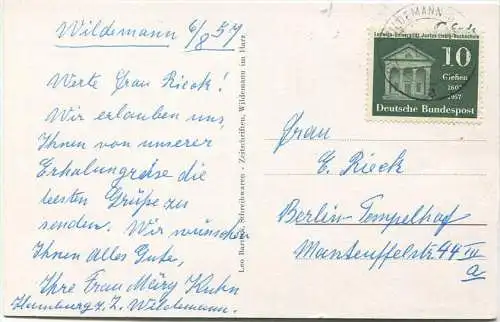 Wildemann 6/8 57
Werte Frau Rieck!
Wir erlauben uns,
Ihnen von unserer
Erholungreise die
besten Grüße zu
senden. Wir wünschen
Ihnen alles Gute,
Ihre Frau Märy Kuhn
Hamburg z. Z. Wildemann.
Leo Bartsch, Schreibwaren - Zeitschriften, Wildemann im Harz
WILDEMANN
Ludwigs-Universität Justus Liebig-Hochschule
10
Gießen
1607
1957
Deutsche Bundespost
Frau
E. Rieck
Berlin-Tempelhof
Manteuffelstr. 44 IV
a